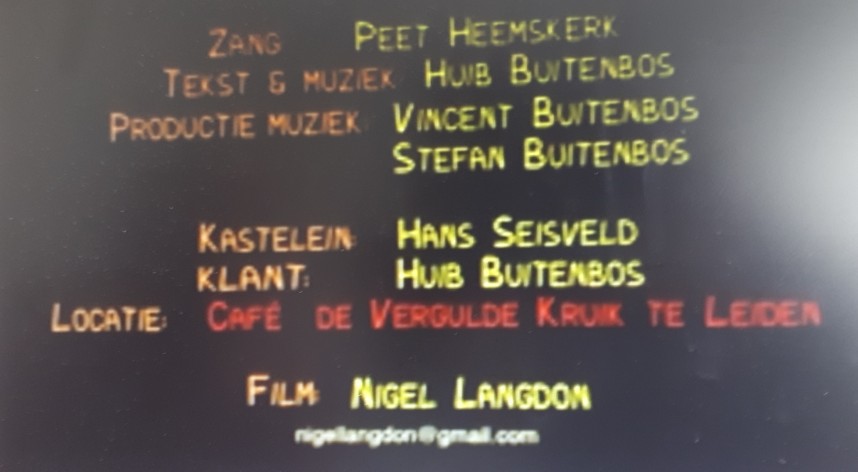 ZANG PEET HEEMSKERK
TEKST & MUZIEK HUIB BUITENBOS
PRODUCTIE MUZIEK VINCENT BUITENBOS
STEFAN BUITENBOS
KASTELEIN: HANS SEISVELD
KLANT: HUIB BUITENBOS
LOCATIE: CAFÉ DE VERGULDE KRUIK TE LEIDEN
FILM: NIGEL LANGDON
nigellangdon@gmail.com